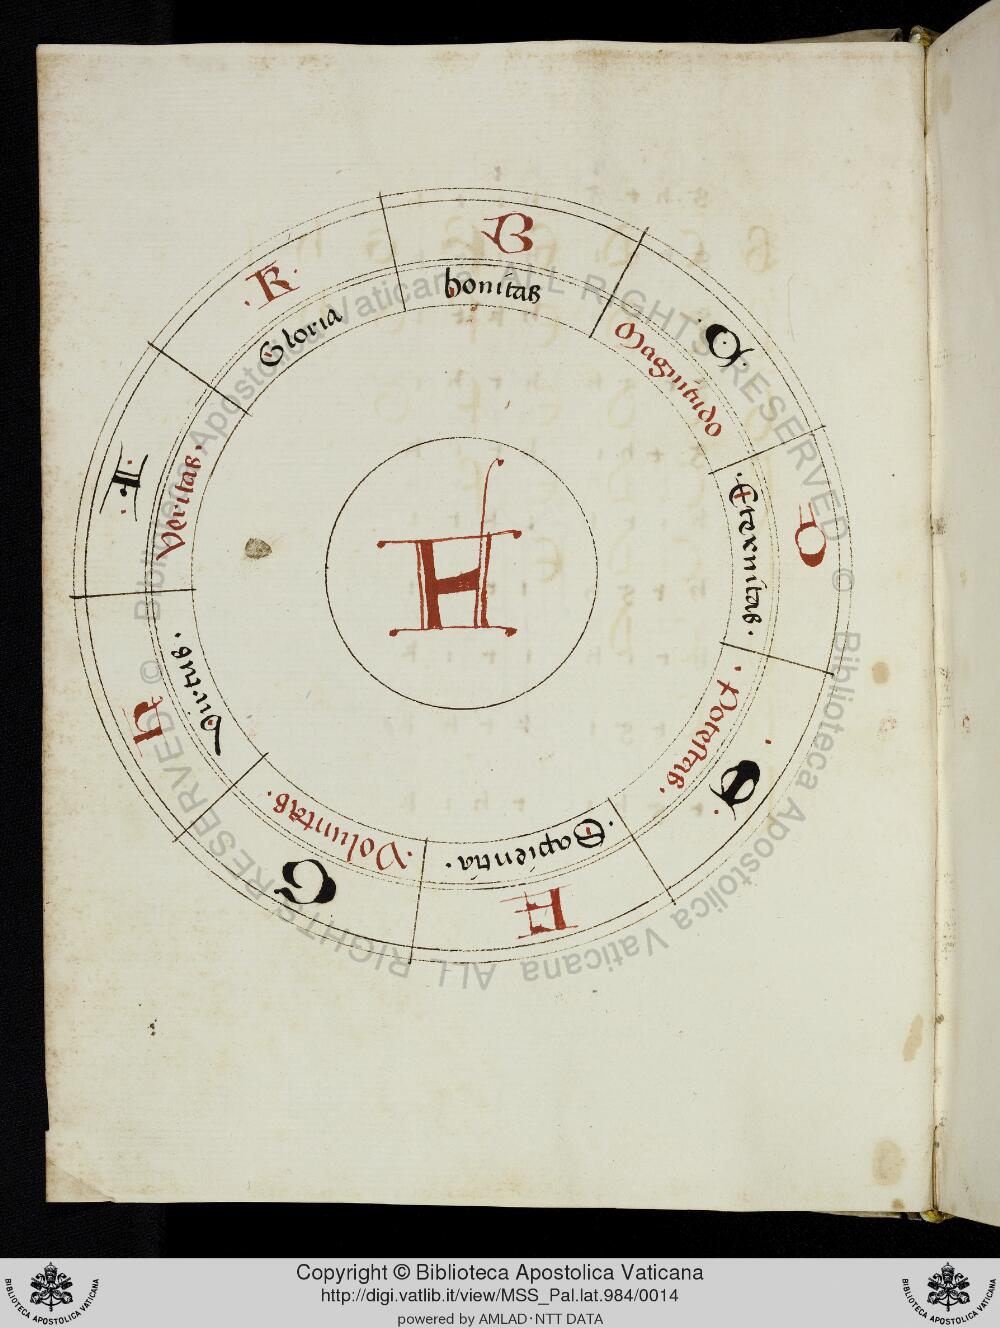 B
bonitas
C
Magnitudo
D
Eternitas.
E
.Potestas.
F
.Sapientia.
G
.Voluntas.
H
virtus.
.I.
Veritas.
.K.
Gloria
A
Biblioteca Apostolica Vaticana ALL RIGHTS RESERVED ©
Biblioteca Apostolica Vaticana ALL RIGHTS RESERVED ©
BIBLIOTECA APOSTOLICA VATICANA
Copyright © Biblioteca Apostolica Vaticana
http://digi.vatlib.it/view/MSS_Pal.lat.984/0014
powered by AMLAD·NTT DATA
BIBLIOTECA APOSTOLICA VATICANA